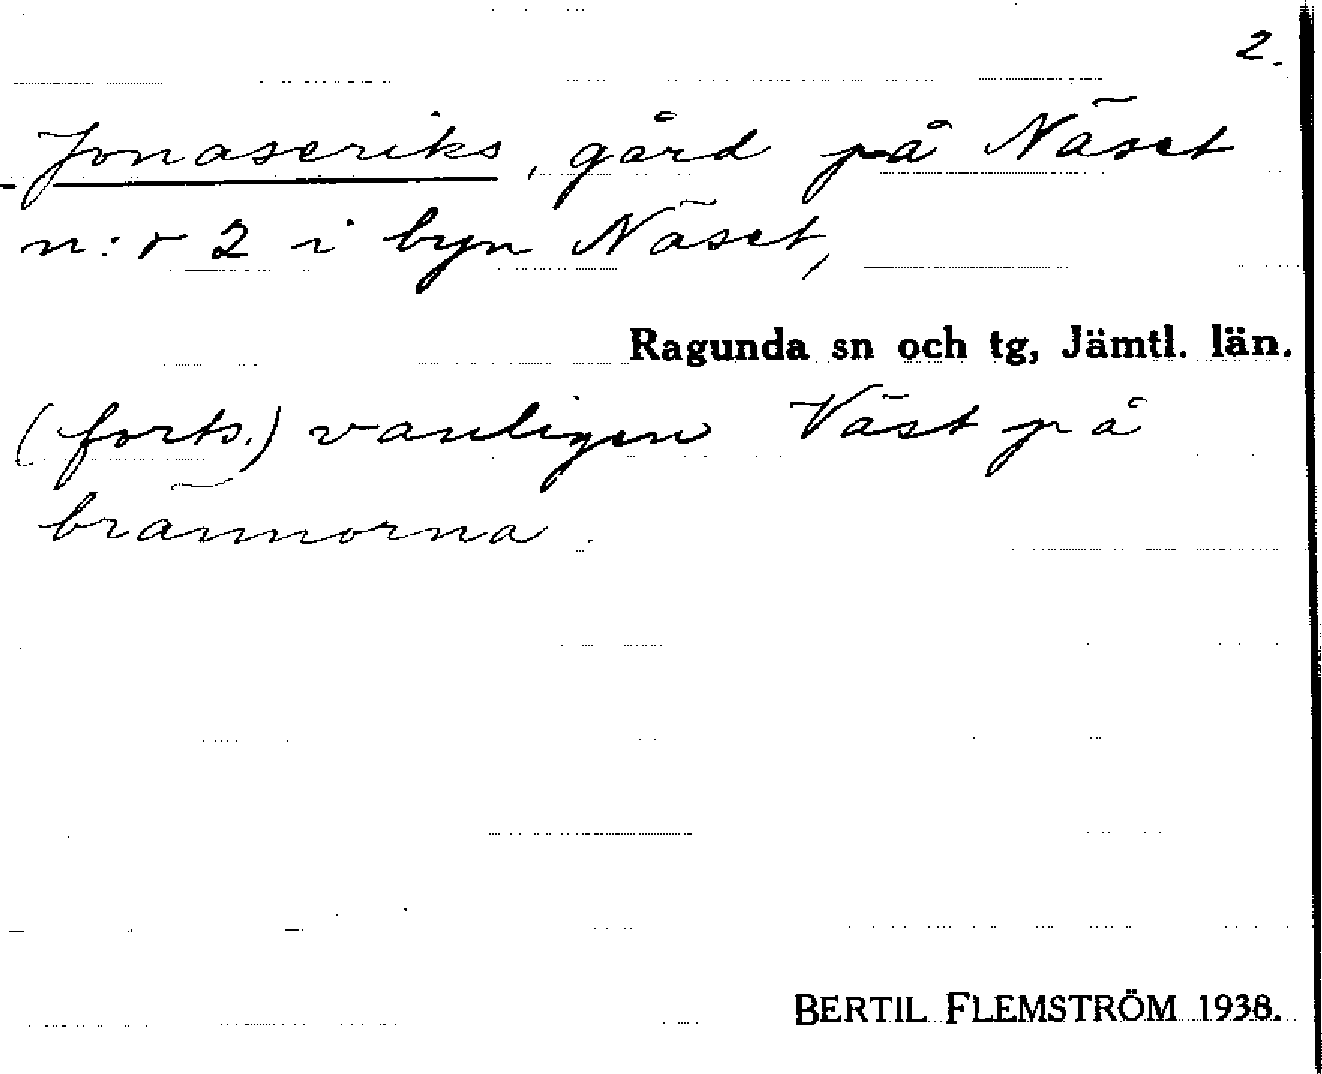 2.
Jonaseriks, gård på Näset
n:r 2 i byn Näset,
Ragunda sn och tg, Jämtl. län.
(forts.) vanligen Väst på
brännorna.
BERTIL FLEMSTRÖM 1938.